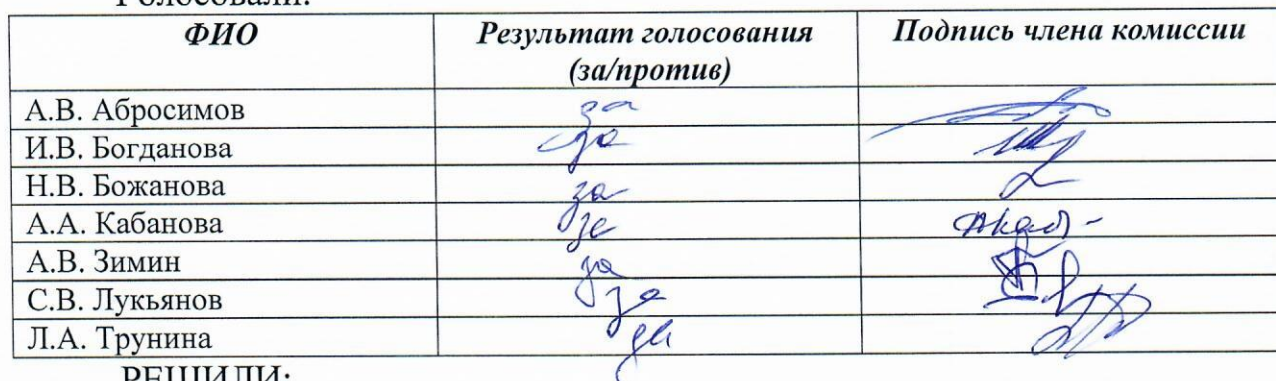 Голосовали:
ФИО Результат голосования (за/против) Подпись члена комиссии
А.В. Абросимов за
И.В. Богданова за
Н.В. Божанова за
А.А. Кабанова за
А.В. Зимин за
С.В. Лукьянов за
Л.А. Трунина
РЕШИЛИ: